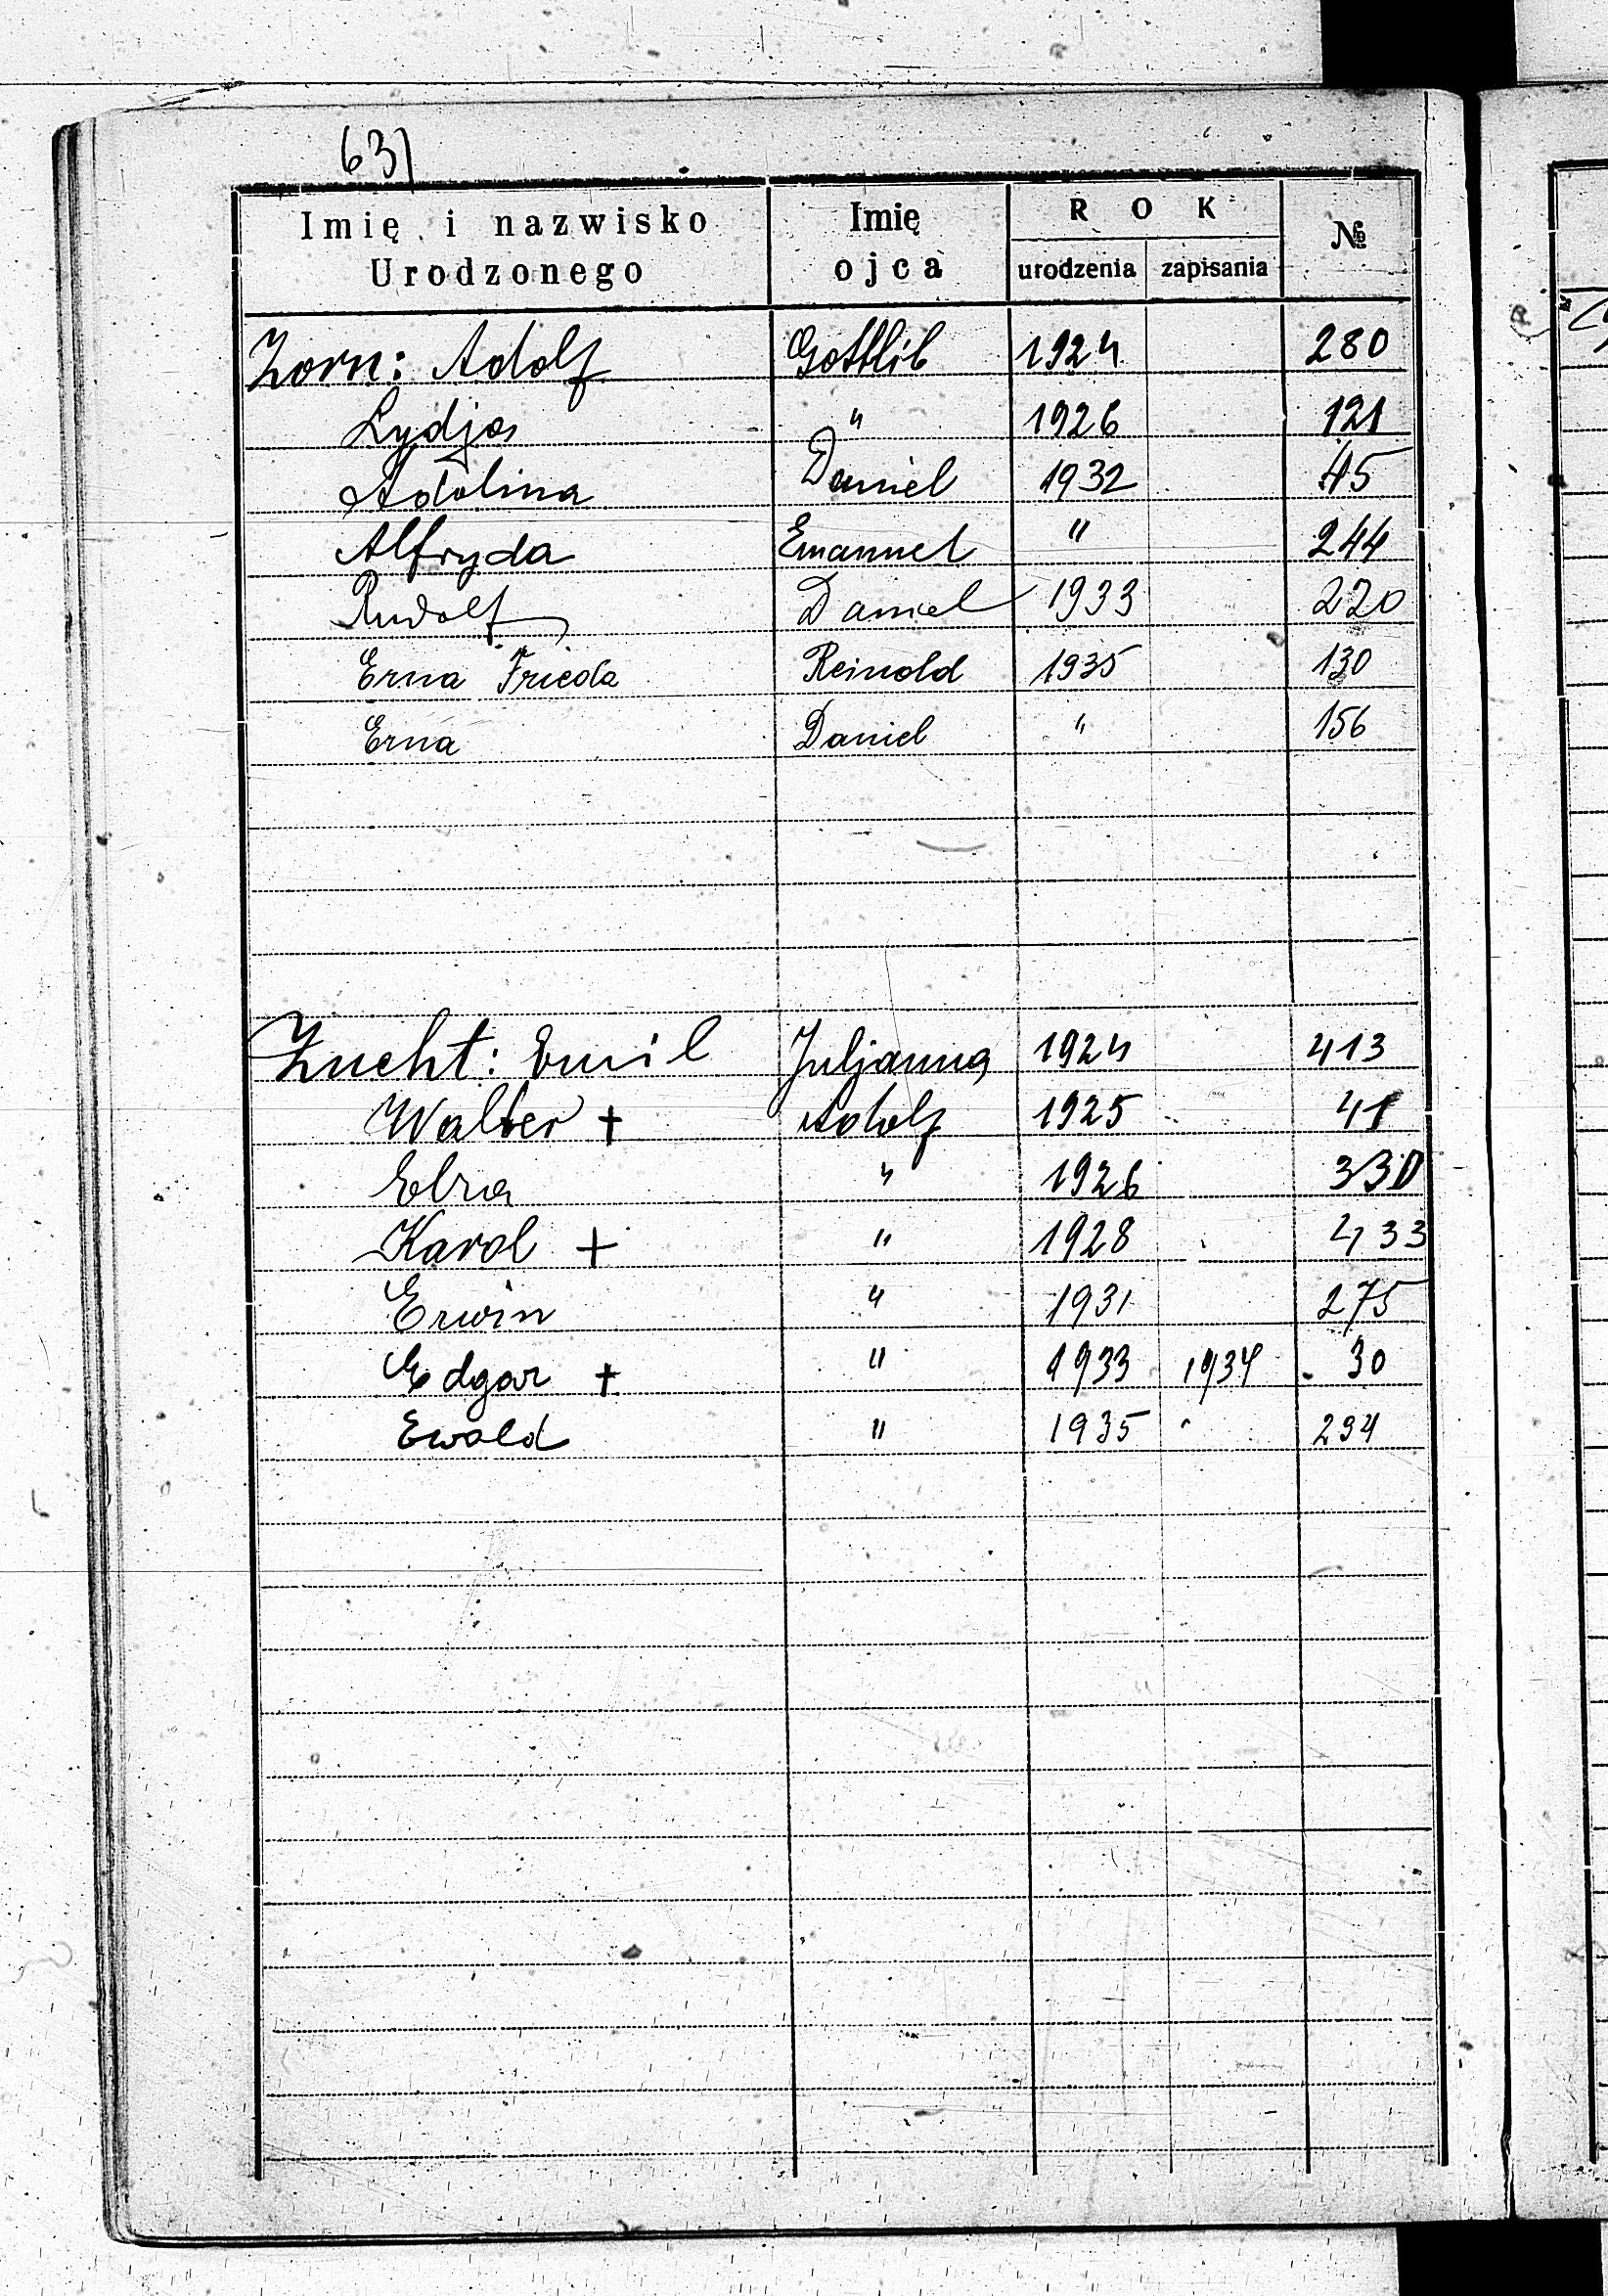 63)
Imię i nazwisko Urodzonego | Imię ojca | ROK urodzenia | ROK zapisania | №
Zorn: Adolf | Gottlib | 1924 | | 280
Lydja | " | 1926 | | 121
Adolina | Daniel | 1932 | | 45
Alfryda | Emanuel | " | | 244
Rudolf | Daniel | 1933 | | 220
Erna Frieda | Reinold | 1935 | | 130
Erna | Daniel | " | | 156
Zucht: Emil | Juljanna | 1924 | | 413
Walter + | Adolf | 1925 | | 41
| " | 1926 | | 330
Karol + | " | 1928 | | 433
Erwin | " | 1931 | | 275
Edgar + | " | 1933 | 1934 | 30
Ewald | " | 1935 | | 294